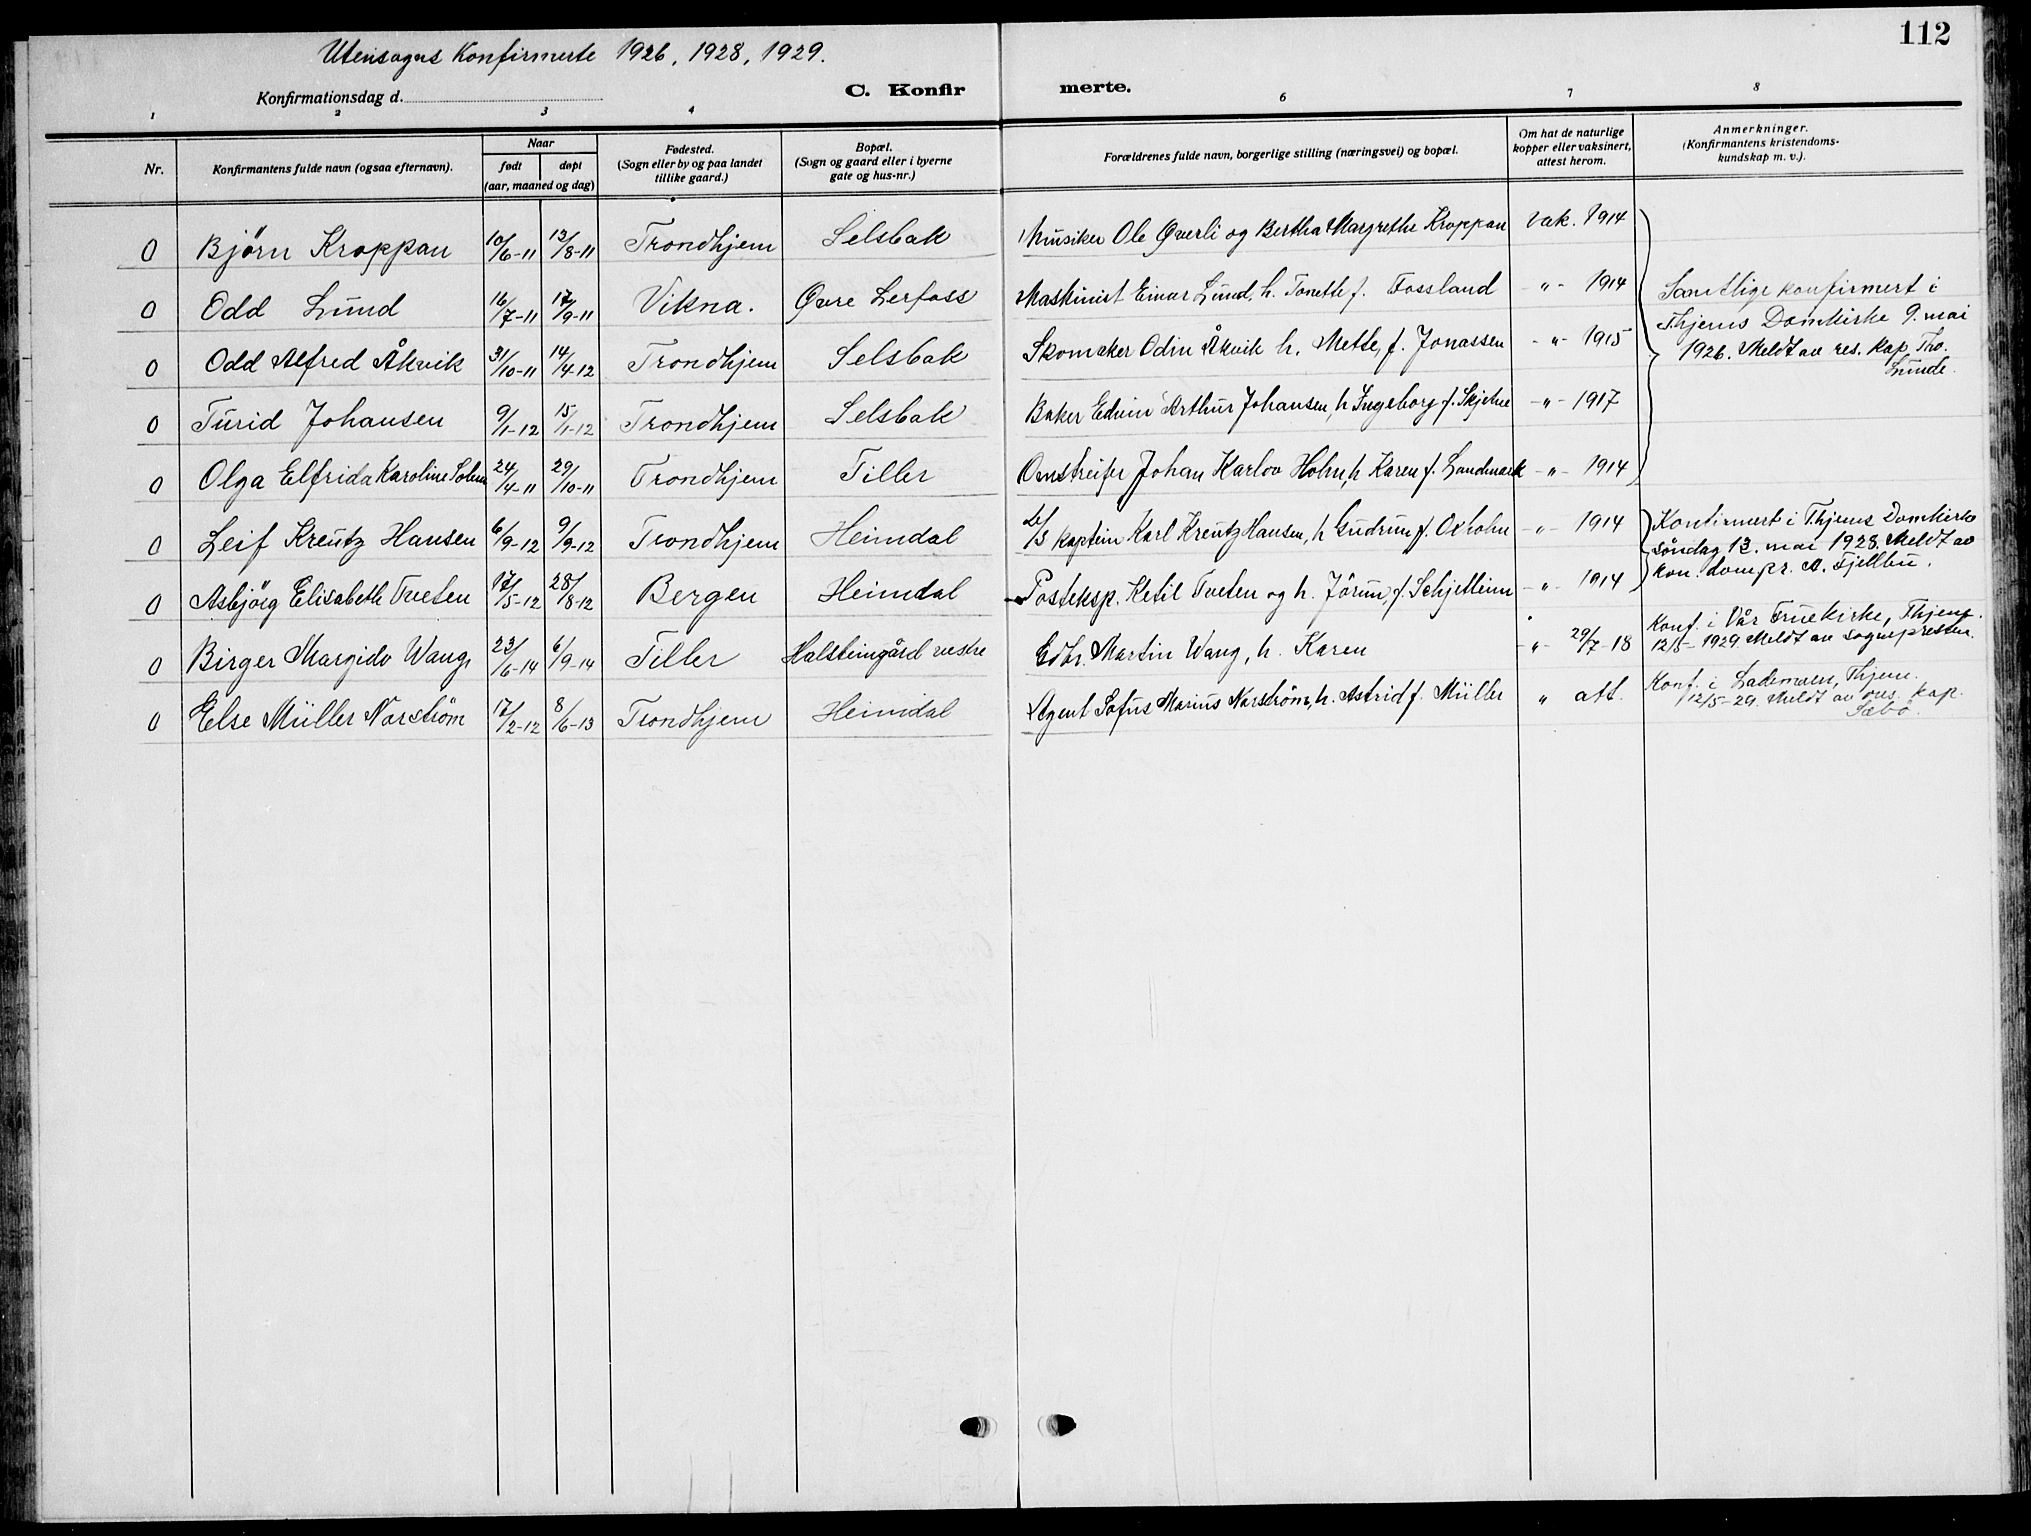 112
Utensogns Konfirmerte 1926, 1928, 1929.
Konfirmationsdag d.
C. Konfir
merte.
1 2 3 4 6 7 8
Nr.
Konfirmantens fulde navn (ogsaa efternavn).
Naar
født døpt
(aar, maaned og dag)
Fødested.
(Sogn eller by og paa landet
tillike gaard.)
Bopæl.
(Sogn og gaard eller i byerne
gate og hus-nr.)
Forældrenes fulde navn, borgerlige stilling (næringsvei) og bopæl.
Om hat de naturlige
kopper eller vaksinert,
attest herom.
Anmerkninger.
(Konfirmantens kristendoms-
kundskap m. v.).
0 Björn Kroppan 10/6-11 13/8-11 Trondhjem Selsbak Musiker Ole Øverli og Bertha Margrethe Kroppan vak. 1914
0 Odd Lund 16/7-11 17/9-11 Vikna. Øvre Lerfoss Maskinist Einar Lund, h. Tonette f. Fossland -"- 1914
0 Odd Alfred Åkvik 31/10-11 14/4-12 Trondhjem Selsbak Skomaker Odin Åkvik h. Mette, f. Jonassen -"- 1915
0 Turid Johansen 9/1-12 15/1-12 Trondhjem Selsbak Baker Edvin Arthur Johansen, h Ingeborg f. Skjelne -"- 1917
0 Olga Elfrida Karoline Solem 24/4-11 29/10-11 Trondhjem Tiller Omstreifer Johan Karlov Holm, h Karen f. Landmark -"- 1914
Samtlige konfirmert i
Thjems Domkirke 9. mai
1926. Meldt av res. kap. Tho.
Lunde.
0 Leif Kreutz Hansen 6/9-12 9/9-12 Trondhjem Heimdal d/s kaptein Karl Kreutz Hansen, h Gudrun f. Oxholm -"- 1914
0 Asbjörg Elisabeth Tveten 17/5-12 28/8-12 Bergen Heimdal Posteksp. Ketil Tveten og h. Jörun, f. Schjetlein -"- 1914
Konfirmert i Thjems Domkirke
søndag 13. mai 1928. Meldt av
kon. dompr. A. Fjellbu.
0 Birger Margido Wang, 23/6-14 6/9-14 Tiller Halsteingård vestre Gdbr. Martin Wang, h. Karen -"- 29/7-18
Konf. i Vår Fruekirke, Thjem.
12/5-1929. Meldt av sognepresten.
0 Else Müller Narström 17/2-12 8/6-13 Trondhjem Heimdal Agent Sofus Marius Narström, h. Astrid f. Müller " att.
Konf. i Lademoen, Thjem.
12/5-29. Meldt av res. kap.
Sæbö.